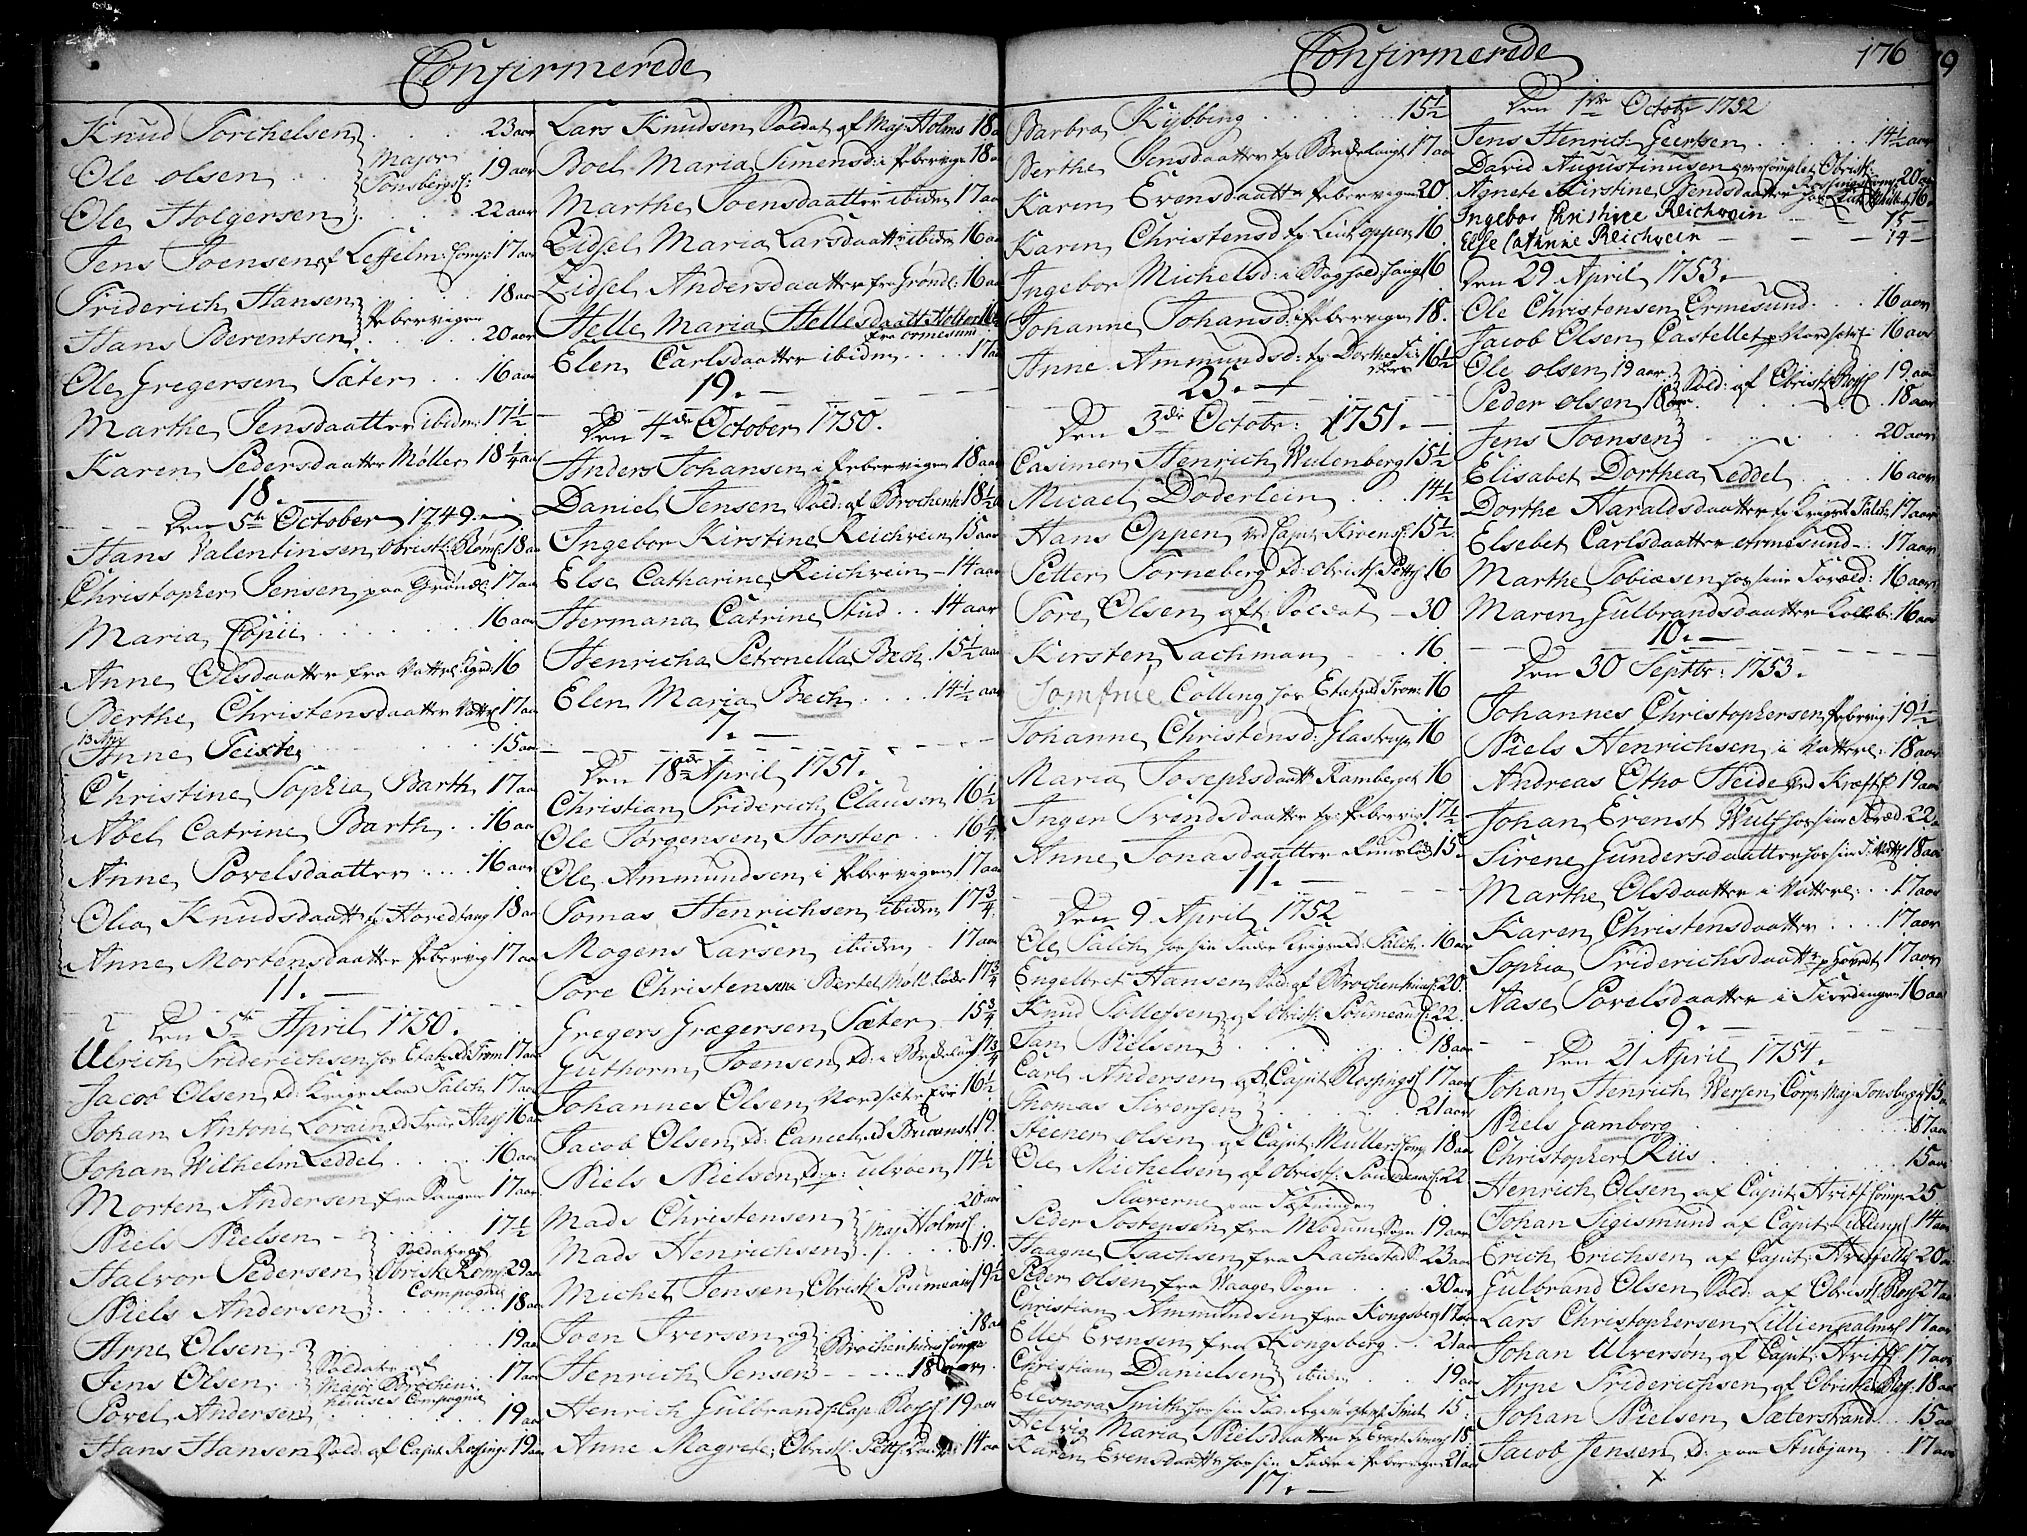 Confirmerede
Knud Torchelsen . . . 23 aar
Ole Olsen . . Major Tonsbergs: 19 aar
Ole Holgersen . . . 22 aar
Jens Joensen af Leffelm: Comp: 17 aar
Friderich Hansen . . 18 aar
Pebervigen
Hans Berentsen . . . 20 aar
Ole Gregersen Sæter . . 16 aar
Marthe Jensdaatter ibidm: 17½
Karen Pedersdaatter Møller 18¼ aar
18.
Den 5te October 1749.
Hans Valentinsen Obristl: Røm: 18 aar
Christopher Jensen paa Grønl: 17 aar
Maria Copii . . . 16 aar
Anne Olsdaatter fra Vattel: 16
Berthe Christensdaatter Vattel 17 aar
Anne Teiste . . . 15 aar
Christine Sophia Barth 17 aar
Abel Catrine Barth . . 16 aar
Anne Povelsdaatter . . . 16 aar
Olea Knudsdaatt: Hovedtang 18 aar
Anne Mortensdaatter Pebervig 17 aar
11.
Den 5te April 1750.
Ulrich Friderichsen hos Etatzrd From 17 aar
Jacob Olsen td: Krigsraad Falch 17 aar
Johan Antoni Lorain 16 aar
Johan Wilhelm Leddel . . . 16 aar
Morten Andersen fra 17 aar
Niels Nielsen . . . 17½
Soldater af
Halvor Pedersen Obristl: Røms 29 aar
Compagnie
Niels Andersen . . . 18 aar
Arne Olsen . . . 19 aar
Soldater af
Jens Olsen . . 17 aar
Major Brochenhuuses Compagnie
Povel Andersen . . . 19 aar
Hans Hansen Sold: af Capit: Rossings 19 aar
Lars Knudsen Soldat af Maj: Holms 18 aar
Boel Maria Simensd: i Pebervigen 18 aar
Marthe Joensdaatter ibidem 17 aar
Zidsel Maria Larsdaatt: ibidem 16 aar
Zidsel Andersdaatter fra Grønl: 16 aar
Helle Maria Hellesdaatt: Holter 16½
fra Ormesund
Elen Carlsdaatter ibidm . . . 17 aar
19.
Den 4de October 1750.
Anders Johansen i Pebervigen 18 aar
Daniel Jensen Sold: af Brochenh: 18½
Ingebor Kirstine Reichwein 15 aar
Else Catharine Reichwein - 14 aar
Hermana Catrine Stud . . 14 aar
Henricha Petronella Bech . 15½ aar
Elen Maria Bech . . . 14½ aar
7.
Den 18de April 1751.
Christian Friderich Clausen 16½
Ole Jørgensen Horster . . 16¼
Ole Ammundsen i Pebervigen 17 aar
Tomas Henrichsen ibidem 17¾
Mogens Larsen ibidem . 17 aar
Tore Christensen Bertel Møll: 17¾
Gregers Grægersen Sæter . 15¾
Guthorm Joensen td: i 17¾
Johannes Olsen Nordsæter 16½
Jacob Olsen td: Cancelrd 19.
Niels Nielsen td: p: Ulvøen 17½
Mads Christensen . . 20 aar
Maj: Holms
Mads Henrichsen . . . 19.
Michel Jensen Obristl: Poumeaus 19½
Joen Iversen og . . 18 aar
Brochenhuus Comp:
Henrich Jensen - - - - 18 aar
Henrich Gulbrands: Cap: Ross: 19 aar
Anne Magrete Obristl: 14 aar
Confirmerede
176
Barbra Kybbing . . . 15½
Berthe Jensdaatter 17 aar
Karen Erensdaatt: Pebervigen 20.
Karen Christensd: 16
Ingebor Michelsd: 16
Johanne Johansd: i Pebervigen 18.
Anne Ammundsd: 16½
25.
Den 3de October: 1751.
Casimer Henrich Wulenberg 15½
Micael Døderlein . . . 14½
Hans Oppen 15½
Petter Torneberg td: Obristl: 16
Tore Olsen aft: Soldat - 30
Kirsten Lachman . . 16
Jomfrue Colling hos Etatzrd From: 16
Johanne Christensd: 16
Maria Josephsdaatt: Ramberget 16
Inger Trondsdaatter fr: Pebervig: 17½
Anne Jonasdaatter 15.
11.
Den 9. April 1752
Ole Falch hos sin Fader Krigsrd: Falch: 16 aar
Engelbret Hansen Sold af Brochenhuus: 20.
Knud Tollefsen af Obristl: Poumeaus: 22.
Jan Nielsen . . . 18 aar
Carl Andersen af Capit: Rossings 17 aar
Thomas Sirensen . . . 21 aar
Steener Olsen af Capit: Mullers Comp: 18 aar
Ole Michelsen af Obristl: Poumeaus: 22
Slaverne paa Fæstningen
Peder Tostensen fra Modum Sogn 19 aar
Haagne Isachsen fra Rachestad S: 23 aar
Peder Olsen fra Vaage Sogn . . 30 aar
Christian Ammundsen fra Kongsberg 17 aar
Ellef Evensen fra Kongsberg . . 21 aar
Christian Danielsen ibidm . . 19 aar
Eleonora Smith 15.
Helvig Maria Nielsdaatter 18
Karen Evensdaatt: hos sin Fader i Pebervigen 21 aar
17.
Den 1te October 1752
Jens Henrich Geertsen . . . 14½ aar
David Augustinusen Obristl: Rossings Comp: 20 aar
Agnete Kirstine Bendsdaatter 16.
Ingebor Christine Reichwein - - 15 -
Else Catrine Reichwein - - - 14 -
Den 29 April 1753.
Ole Christensen Ermesund . . 16 aar
Jacob Olsen Castellet p: Nordsætr: 16 aar
Ole Olsen 19 aar Sold: af Obristl: Ross 19 aar
Peder Olsen 18 aar . . . 18 aar
Jens Joensen . . . 20 aar
Elisabet Dorthea Leddel . . 16 aar
Dorthe Haraldsdaatter fr Krigsrd Falch: 17 aar
Elsebet Carlsdaatter Ormesund - 17 aar
Marthe Tobiæsen hos sine Foræld: 16 aar
Maren Gulbrandsdaatter 16 aar
10.
Den 30 Septbr: 1753.
Johannes Christophersen Pebervig: 19½
Niels Henrichsen i Vattere: 18 aar
Andreas Otho Heide 19 aar
Johan Erenst Wulf hos sine Foræld 22.
Sirene Gundersdaatter 18 aar
Marthe Olsdaatter i Vattere: . 17 aar
Karen Christensdaatter . . . 17 aar
Sophia Friderichsdaatt: p: Hovedt 17 aar
Aase Povelsdaatter i Fierdingen 16 aar
9.
Den 21 April 1754.
Johan Henrich Wersen, Corp: Maj: Tonsbergs 15.
Niels Gamborg . . . 17 aar
Christopher Riis . . . 15 aar
Henrich Olsen af Capit: Comp: 25
Johan Sigismund af Capit: 14 aar
Erich Erichsen af Capit: 20 aar
Gulbrand Olsen Sold: af Obristl: Ross: 27 aar
Lars Christophersen Lillienpalms 17 aar
Johan Ulversøn af Capit: 17 aar
Arne Friderichsen af Obristl: Ross: 18 aar
Johan Nielsen Sæterstrand . 15 aar
Jacob Jensen td: paa Stubjan . 17 aar
x